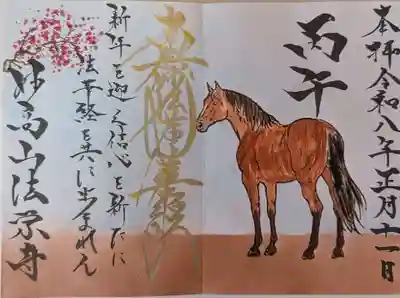 奉拝令和八年正月十一日
丙午
南無妙法蓮華経
新年を迎え信心を新たに
法華経と共に歩まれん
妙高山法宗寺